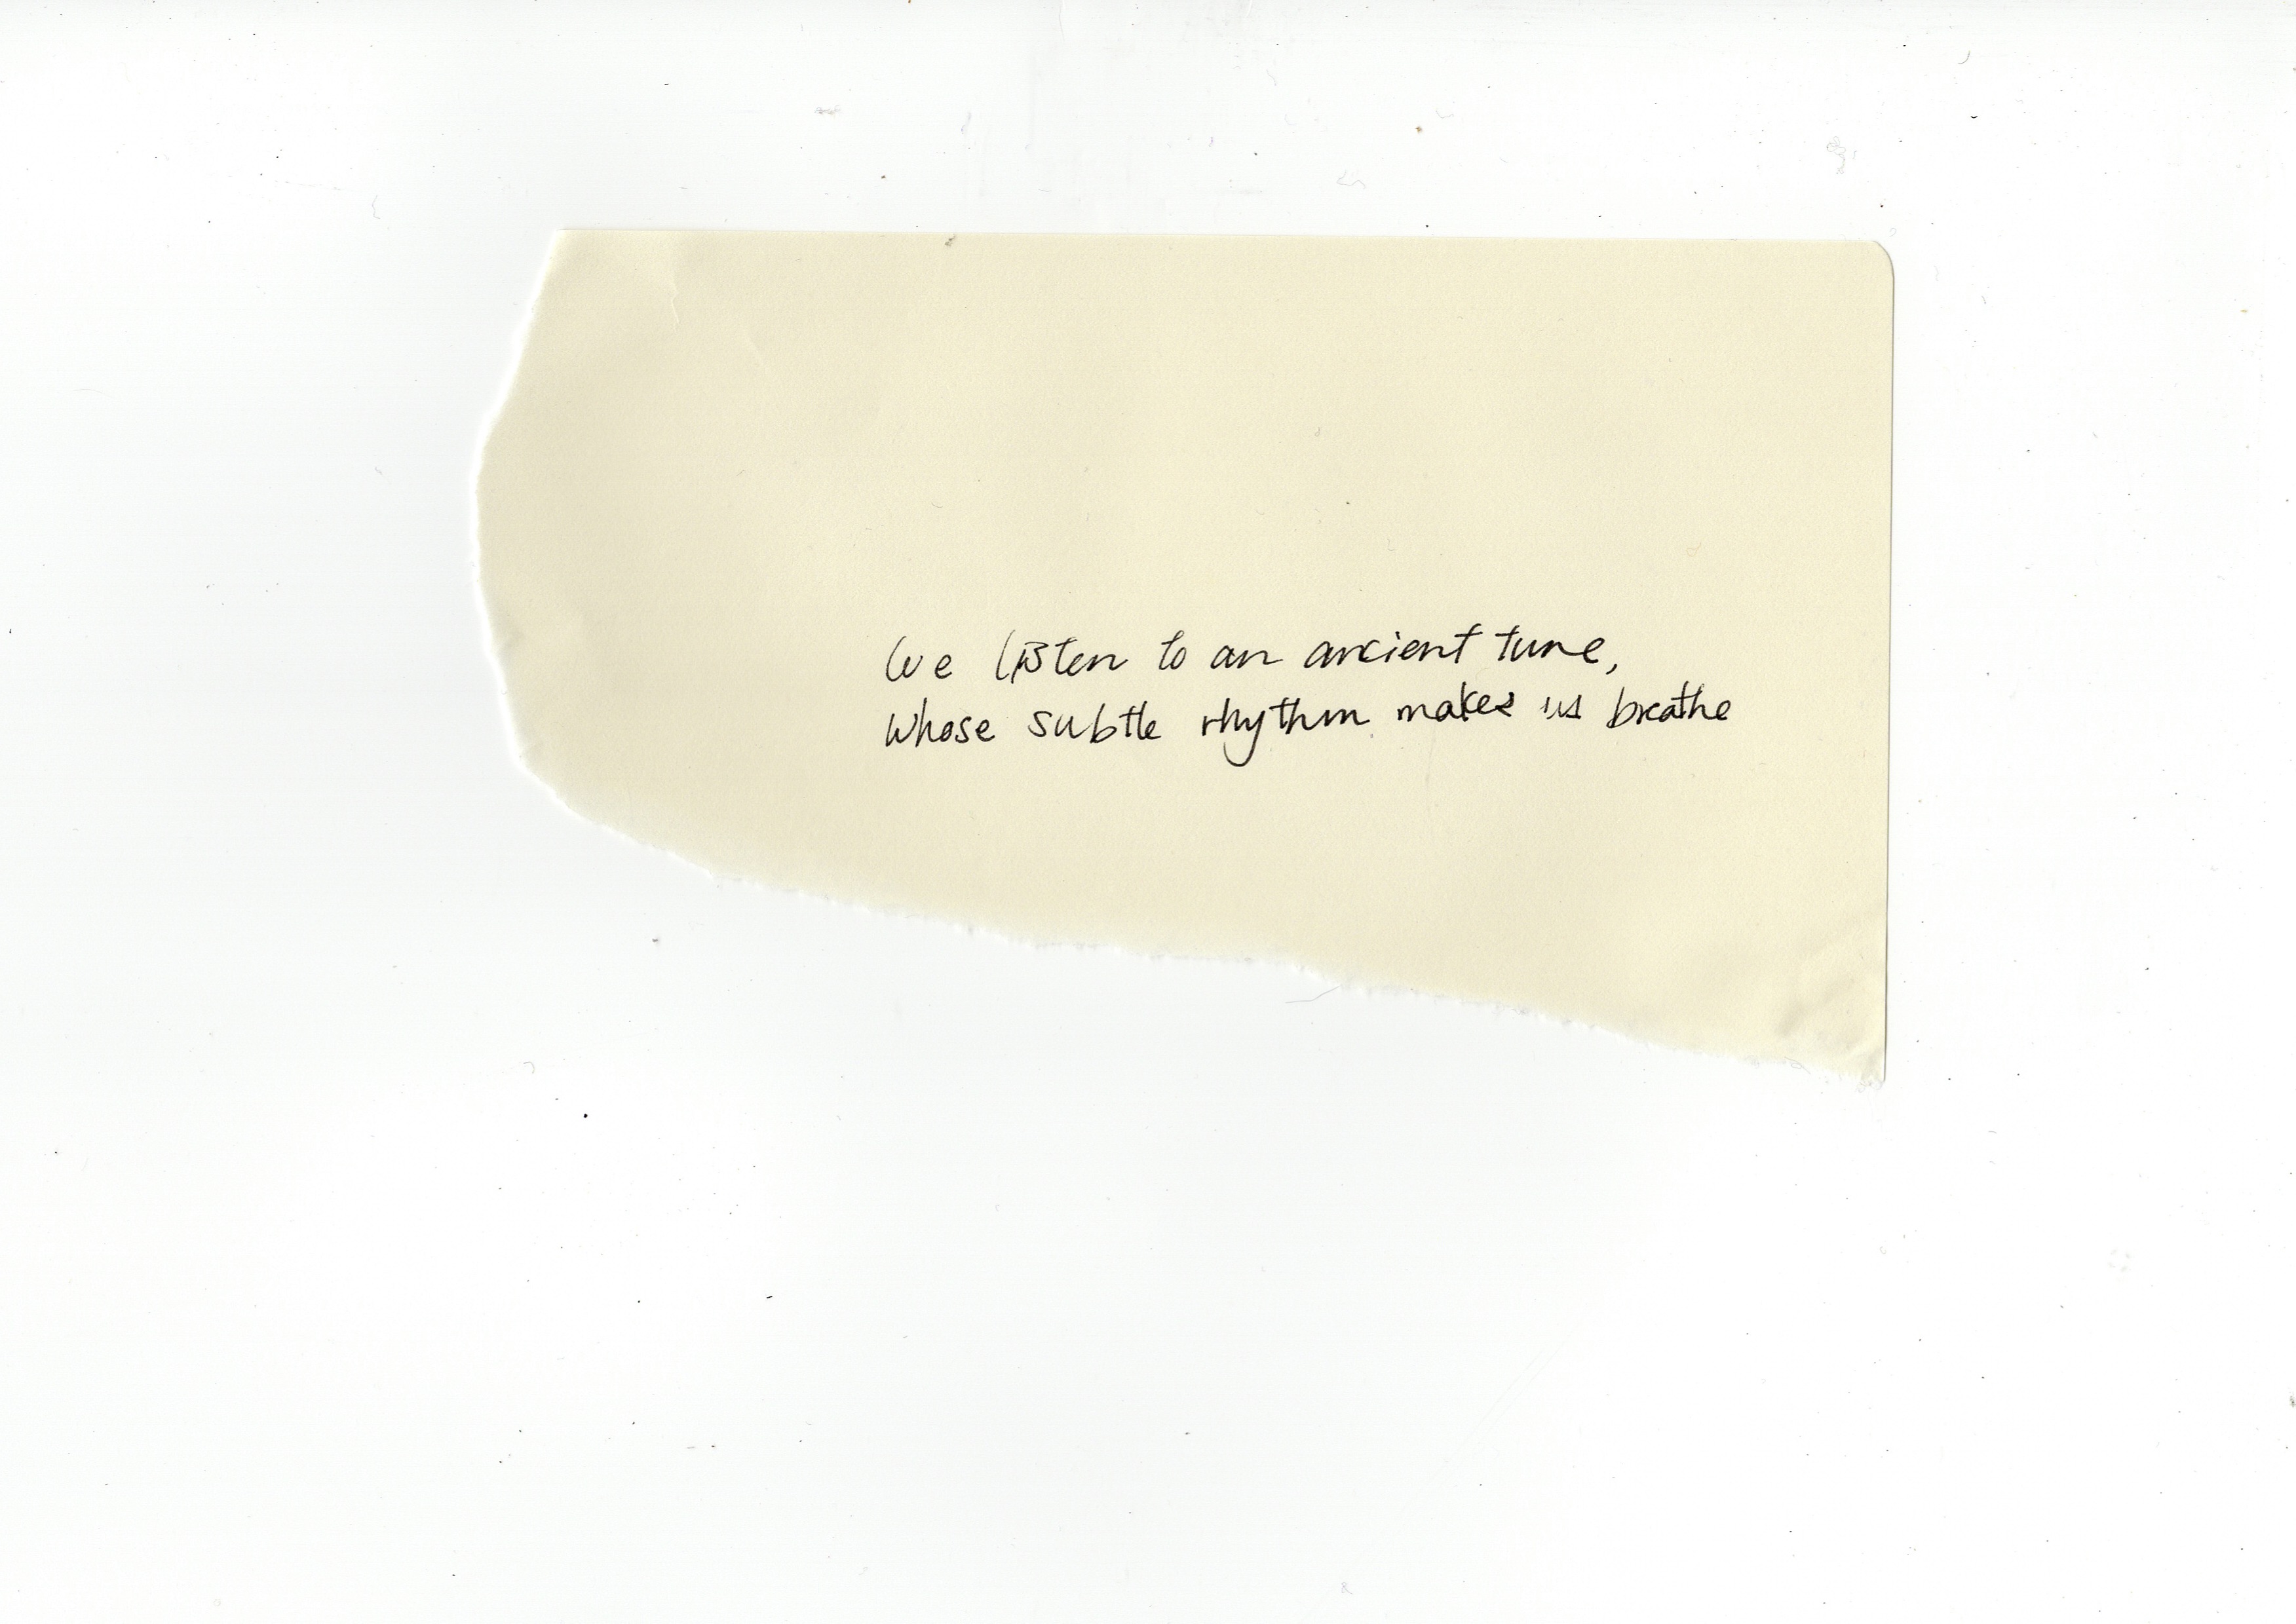 We listen to an ancient tune,
Whose subtle rhythm makes us breathe